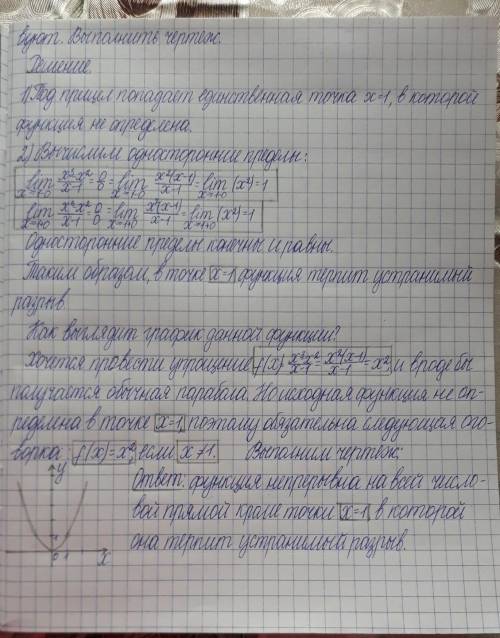 вуют. Выполнить чертеж.
Решение.
1) Под прицел попадает единственная точка x=1, в которой
функция не определена.
2) Вычислим односторонние пределы:
lim x→1-0 x³-x²/x-1 = 0/0 = lim x→1-0 x²(x-1)/x-1 = lim x→1-0 (x²) = 1
lim x→1+0 x³-x²/x-1 = 0/0 = lim x→1+0 x²(x-1)/x-1 = lim x→1+0 (x²) = 1
Односторонние пределы конечны и равны.
Таким образом, в точке x=1 функция терпит устранимый
разрыв.
Как выглядит график данной функции?
Хочется провести упрощение f(x) x³-x²/x-1 = x²(x-1)/x-1 = x², и вроде бы
получается обычная парабола. Но исходная функция не оп-
ределена в точке x=1, поэтому обязательна следующая ого-
ворка: f(x)=x², если x≠1. Выполним чертеж:
y
Ответ: функция непрерывна на всей число-
вой прямой кроме точки x=1, в которой
она терпит устранимый разрыв.
1
0 1 x